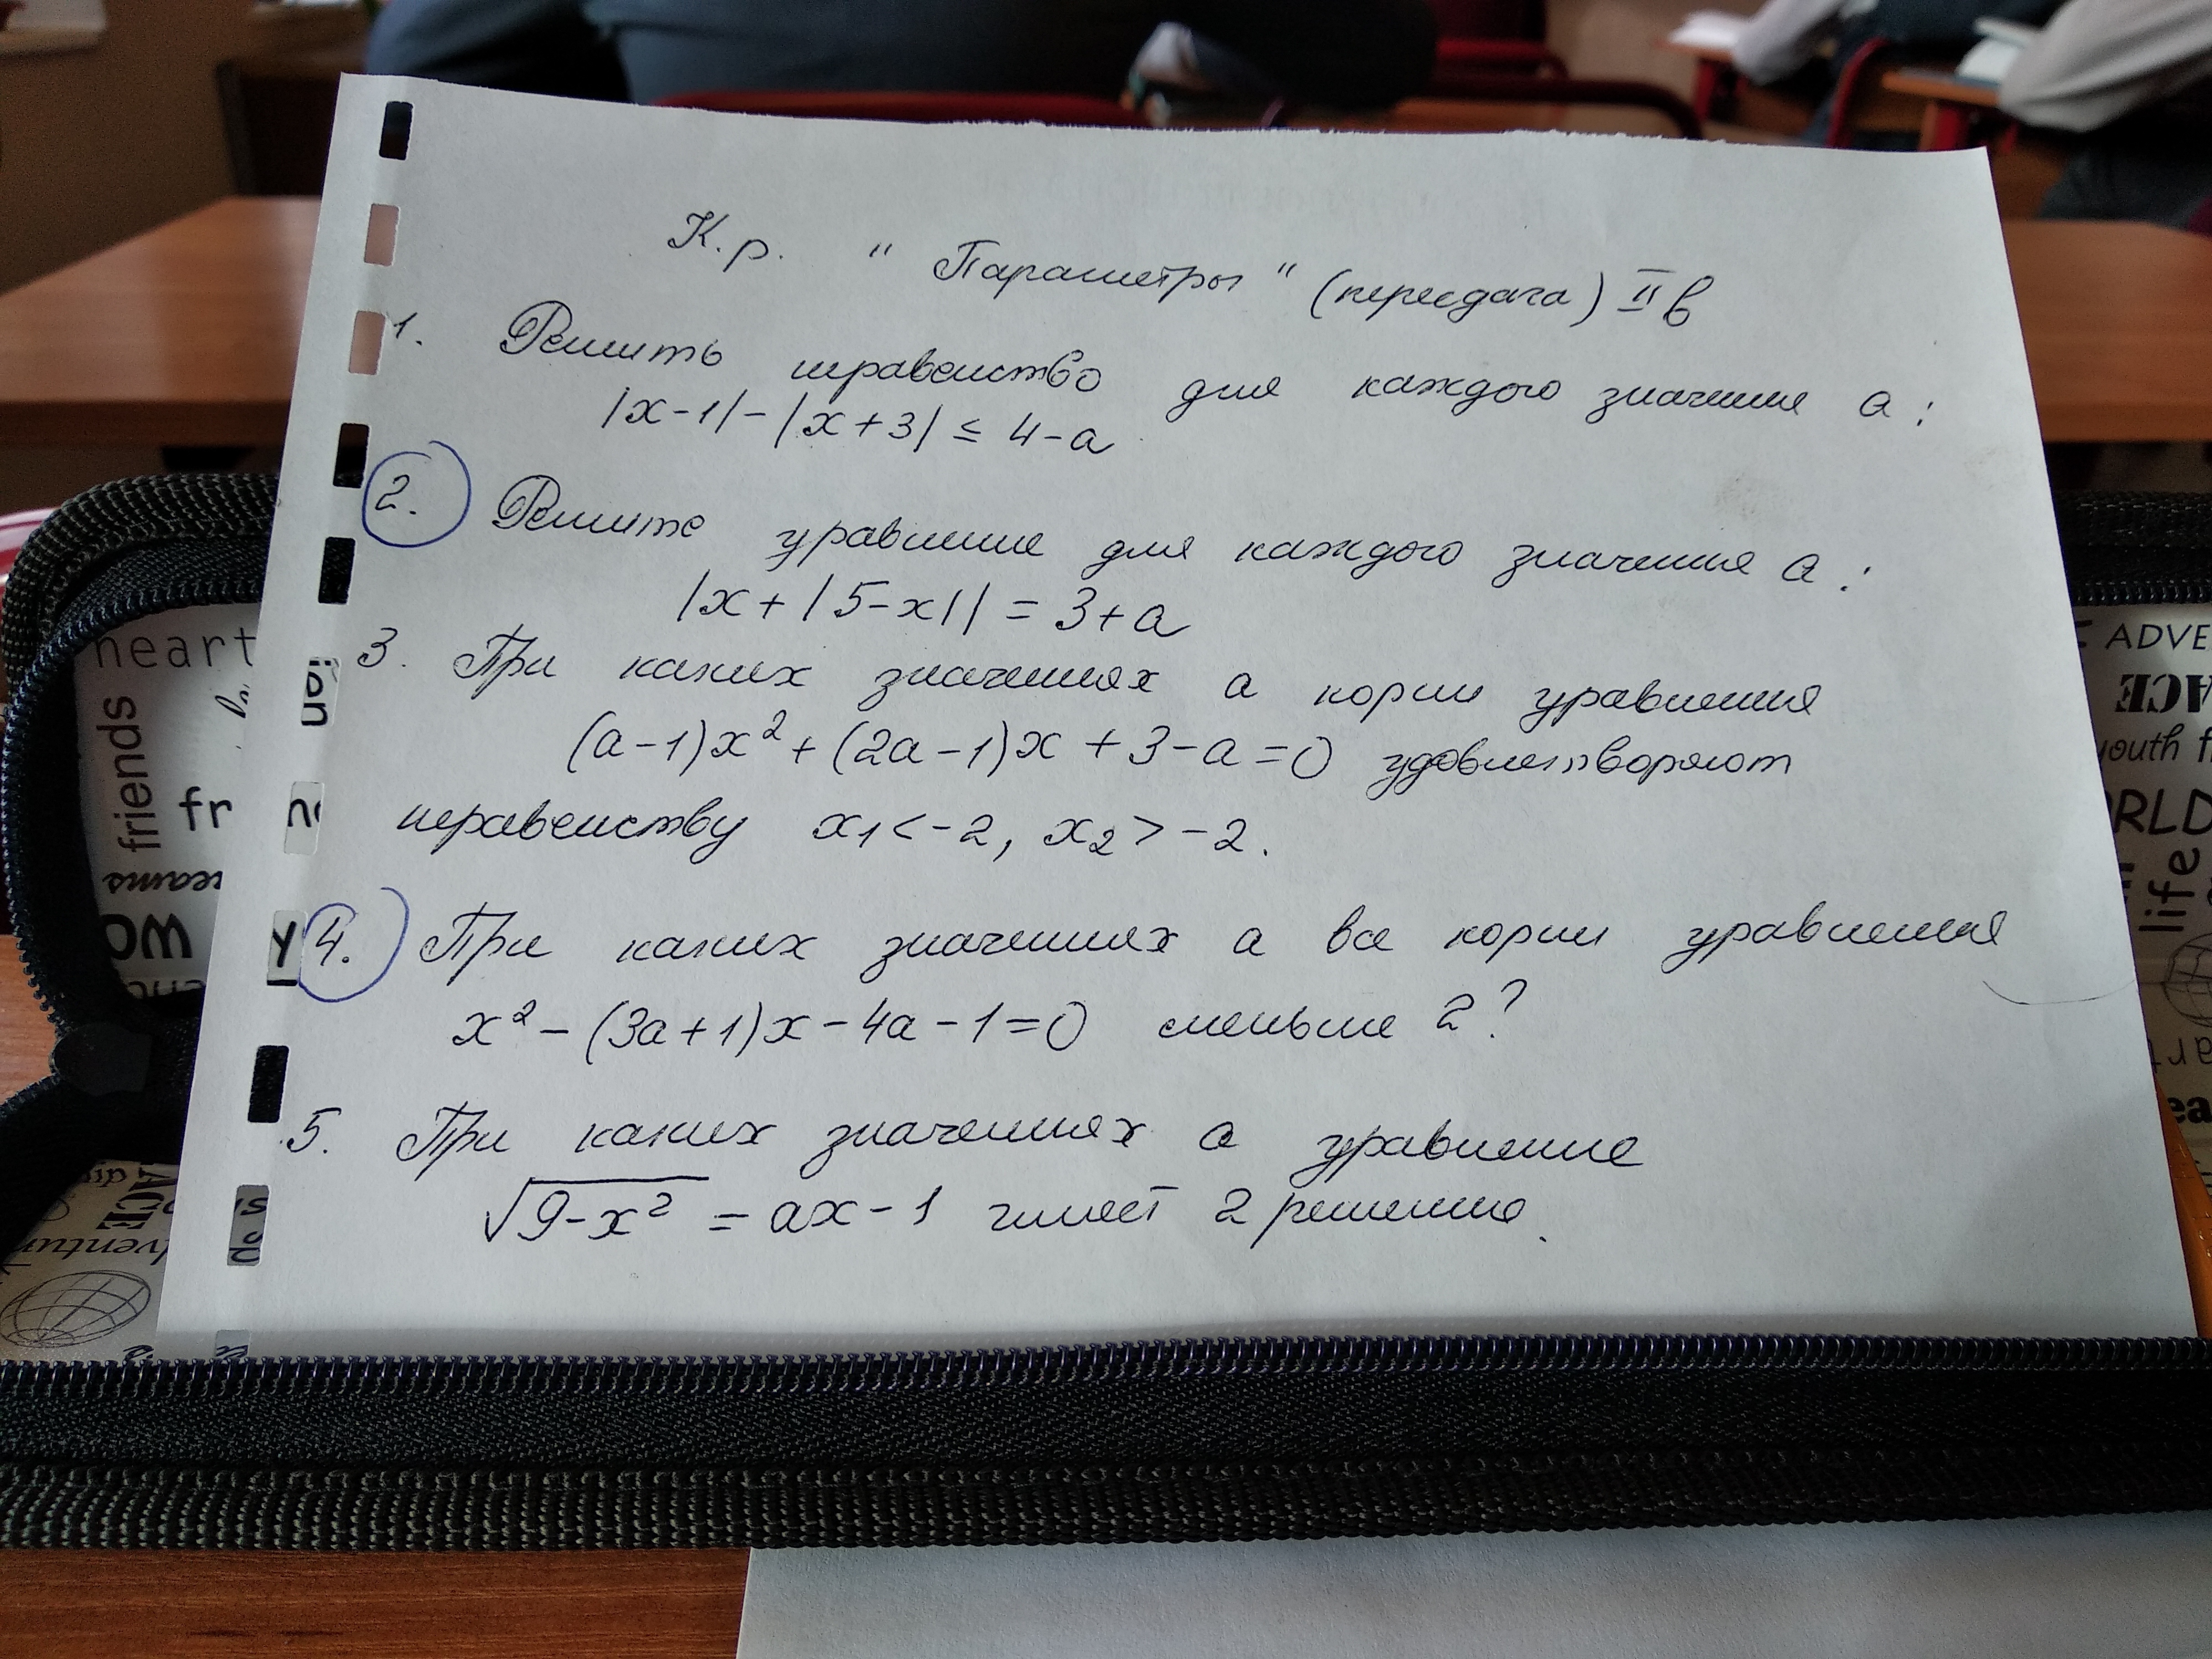 К.р. "Параметры" (пересдача) II в
1. Решить неравенство для каждого значения a:
|x-1|-|x+3| ≤ 4-a
2. Решите уравнение для каждого значения a:
|x+|5-x|| = 3+a
3. При каких значениях a корни уравнения
(a-1)x²+(2a-1)x+3-a=0 удовлетворяют
неравенству x₁<-2, x₂>-2.
4. При каких значениях a все корни уравнения
x²-(3a+1)x-4a-1=0 меньше 2?
5. При каких значениях a уравнение
√(9-x²) = ax-1 имеет 2 решения.
heart
friends
fr
ADVE
ACE
youth f
RLD
life